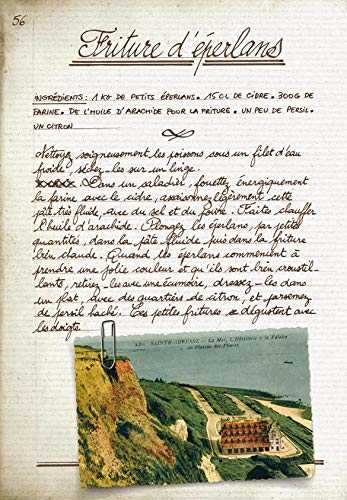 56
Friture d'éperlans
INGRÉDIENTS : 1 KG DE PETITS ÉPERLANS. 15 CL DE CIDRE. 300G DE
FARINE. DE L'HUILE D'ARACHIDE POUR LA FRITURE. UN PEU DE PERSIL.
UN CITRON
Nettoyez soigneusement les poissons sous un filet d'eau
froide, séchez-les sur un linge.
Dans un saladier, fouettez énergiquement
la farine avec le cidre, assaisonnez légèrement cette
pâte très fluide, avec du sel et du poivre. Faites chauffer
l'huile d'arachide. Plongez les éperlans, par petites
quantités, dans la pâte fluide puis dans la friture
bien chaude. Quand les éperlans commencent à
prendre une jolie couleur et qu'ils sont bien croustil-
lants, retirez-les avec une écumoire, dressez-les dans
un plat, avec des quartiers de citron, et parsemez
de persil haché. Ces petites fritures se dégustent avec
les doigts.
SAINTE-ADRESSE - La Mer, L'Hôtellerie et la Falaise
au Plateau des Phares